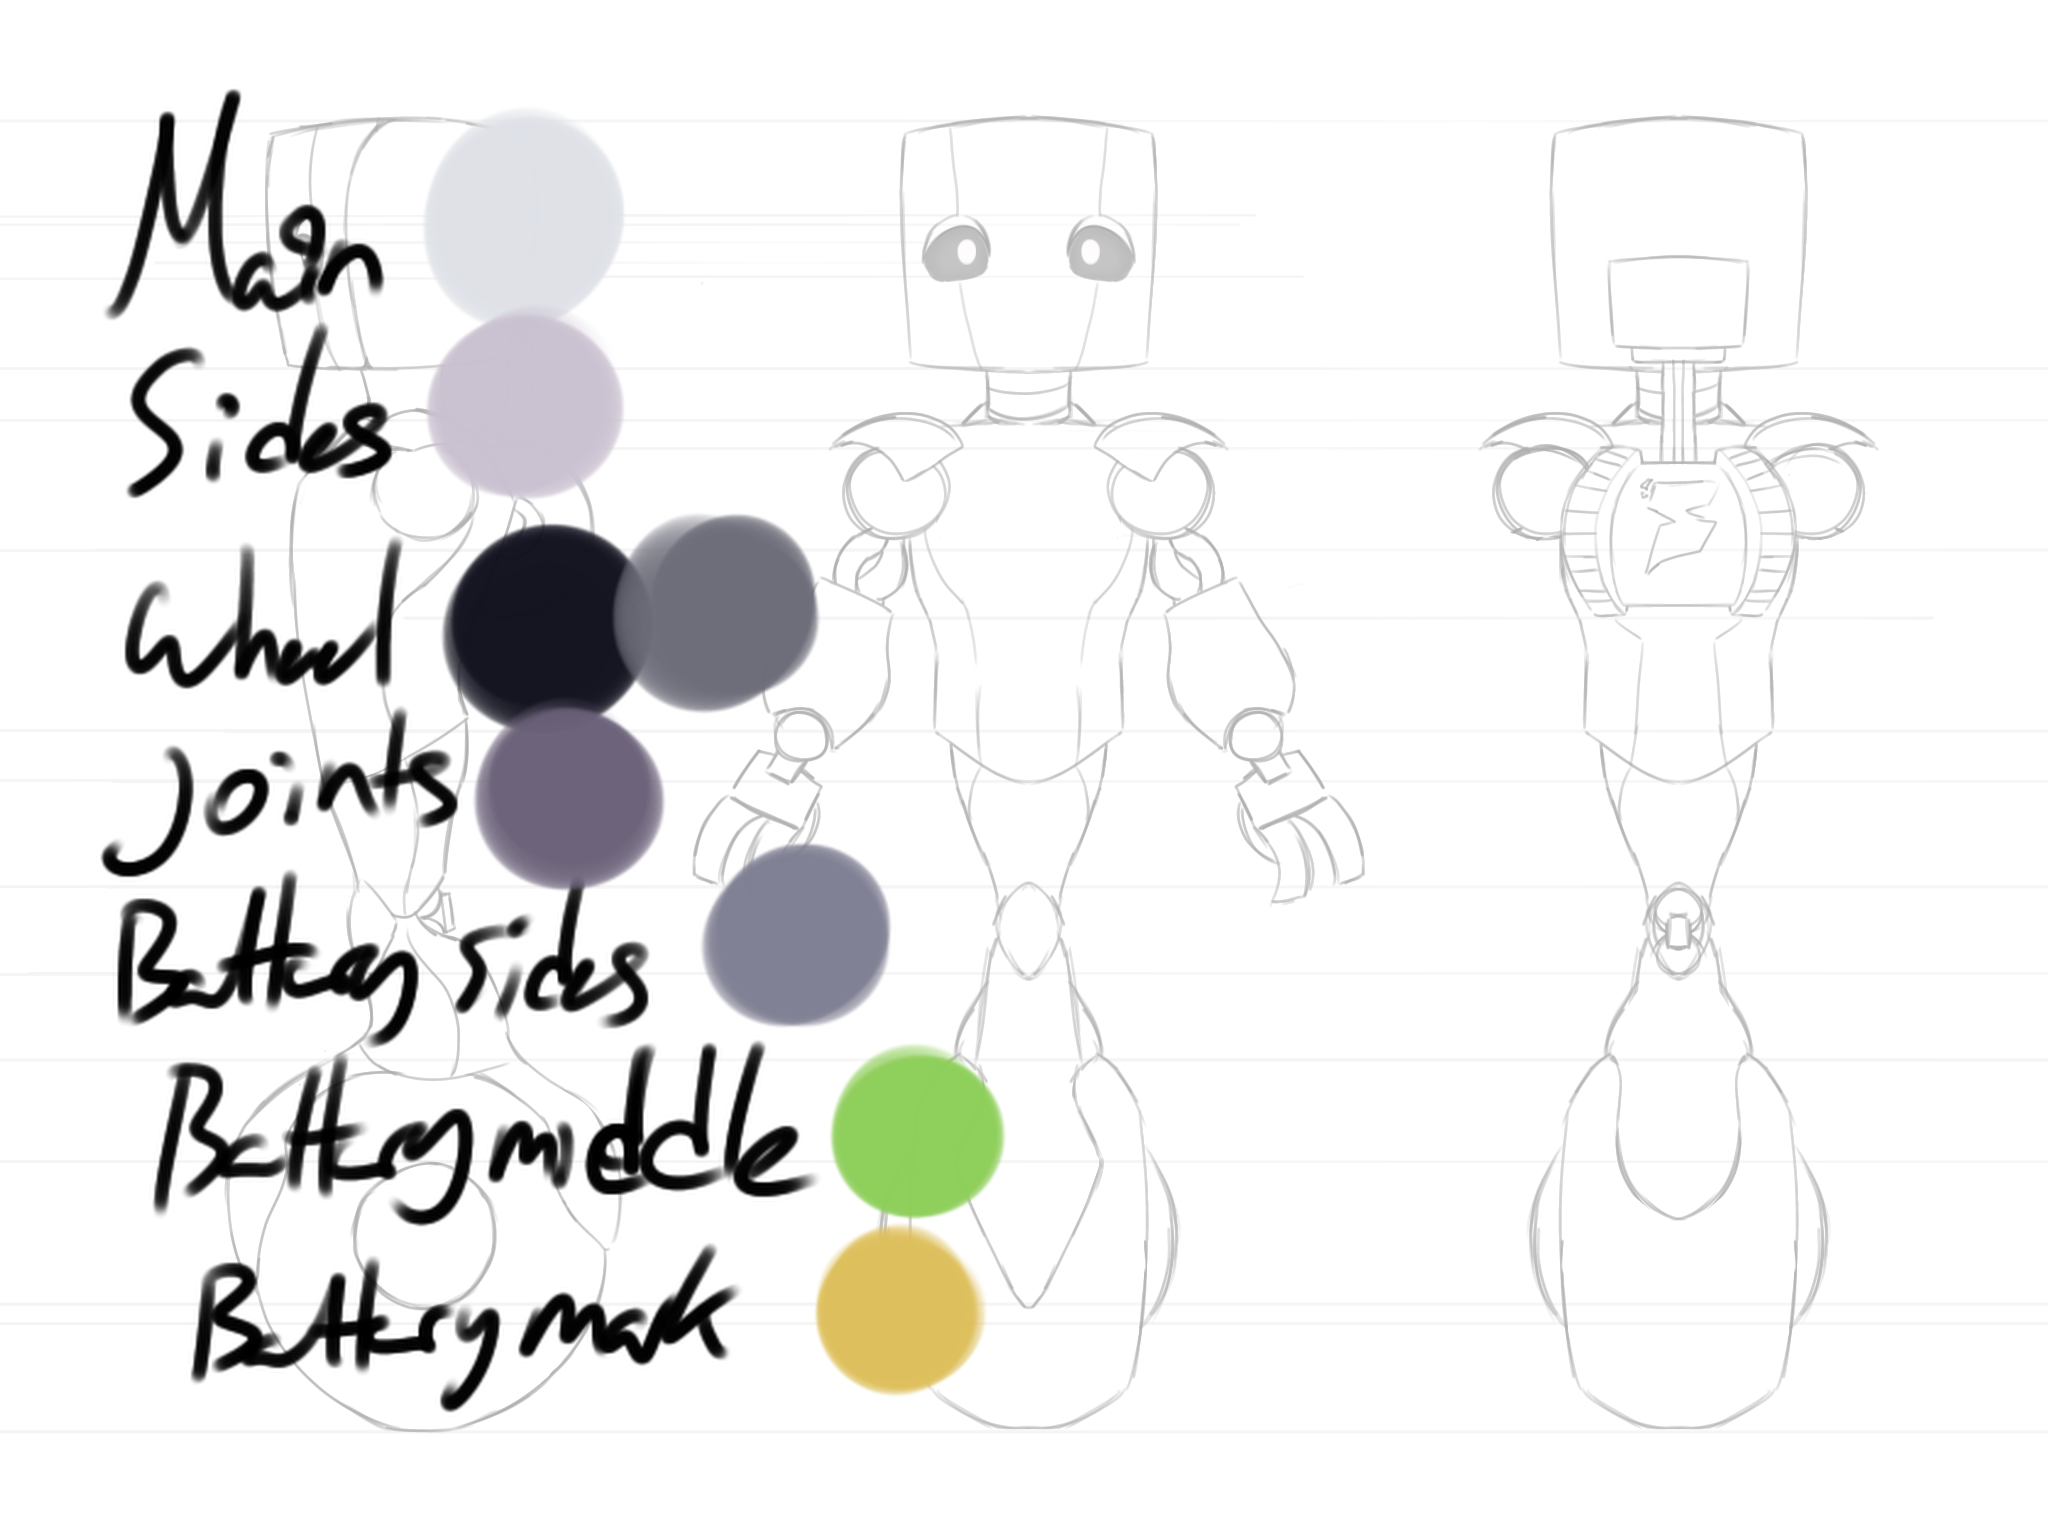 Main
Sides
Wheel
Joints
Battery sides
Battery middle
Battery mark